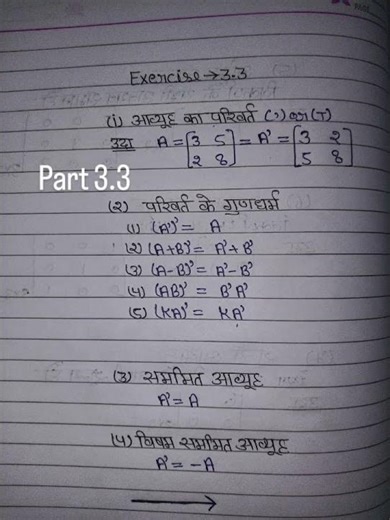 Exercise → 3.3
(i) आव्यूह का परिवर्त (') या (T)
उदा A = [3 5 2 8] = A' = [3 2 5 8]
Part 3.3
(२) परिवर्त के गुणधर्म
(1) (A')' = A
(२) (A+B)' = A'+B'
(3) (A-B)' = A'-B'
(4) (AB)' = B'A'
(5) (KA)' = KA'
(3) सममित आव्यूह
A' = A
(4) विषम सममित आव्यूह
A' = -A